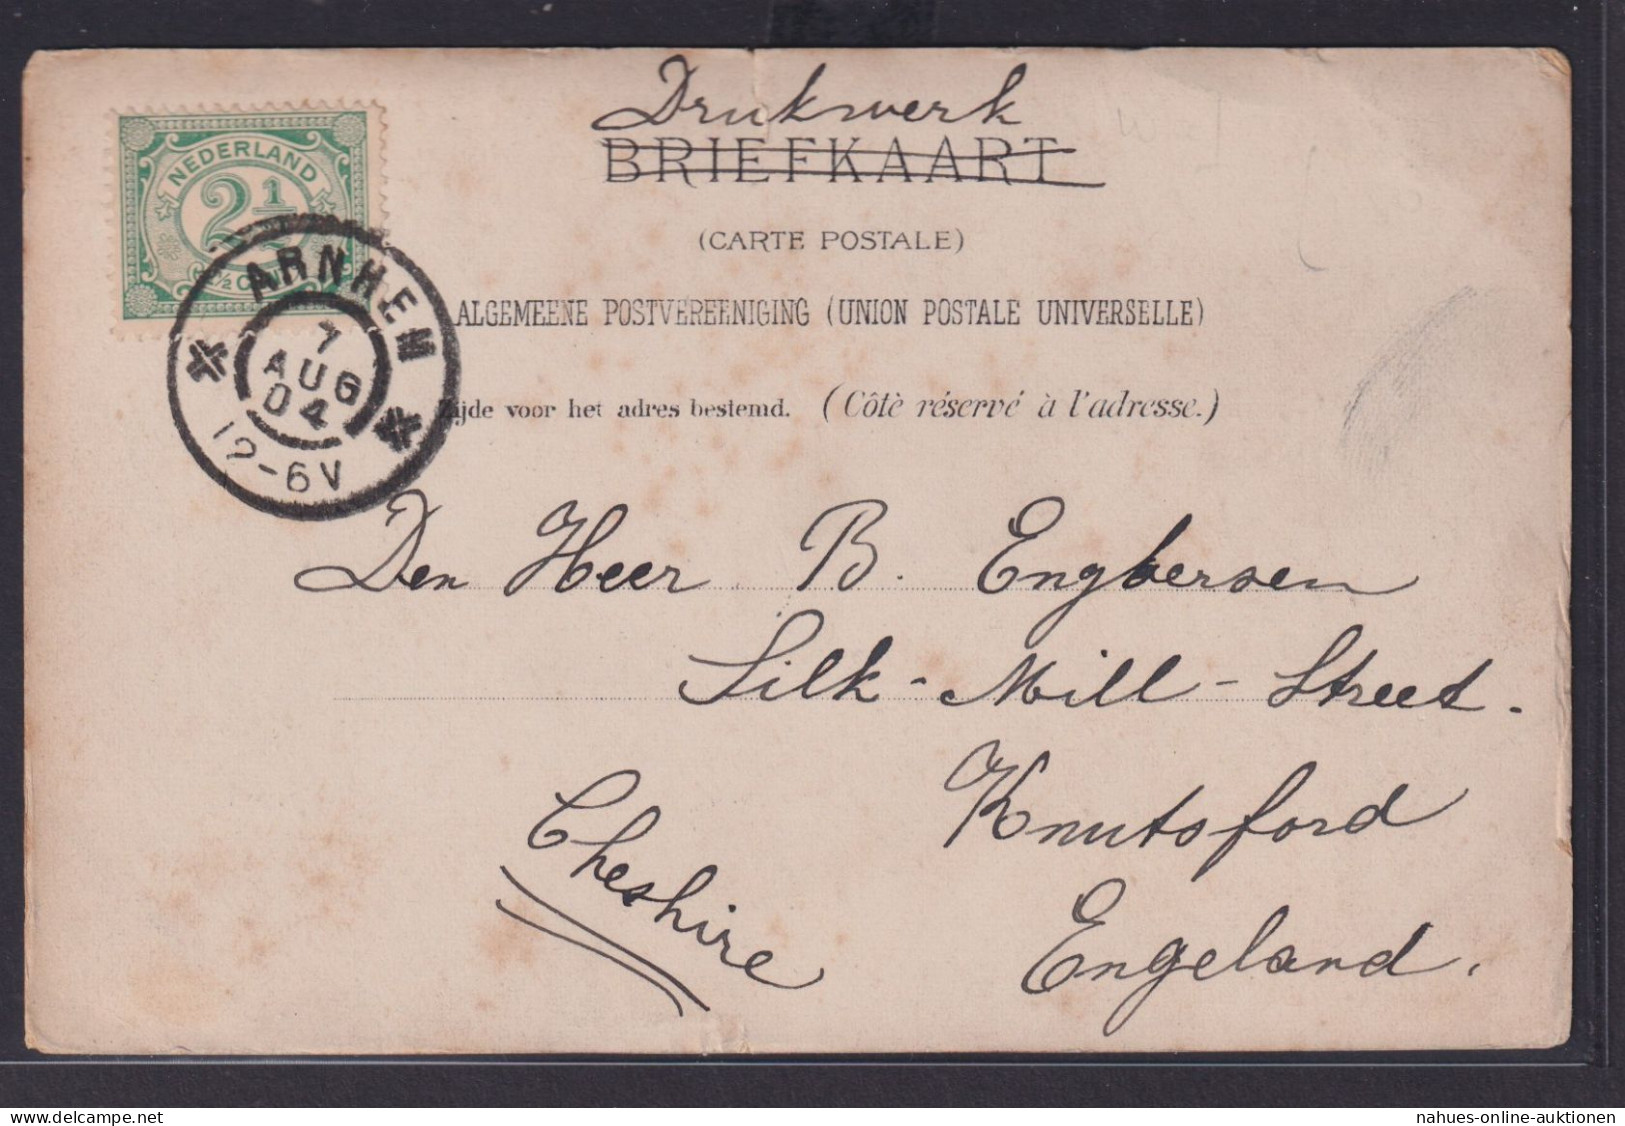 Drukwerk
BRIEFKAART
(CARTE POSTALE)
ALGEMEENE POSTVEREENIGING (UNION POSTALE UNIVERSELLE)
Zijde voor het adres bestemd. (Côtè réservé à l'adresse.)
NEDERLAND
2½
ARNHEM
7
AUG
04
12-6V
Den Heer B. Engbersen
Silk-Mill-Street.
Knutsford
Cheshire
Engeland.
delcampe.net
nahues-online-auktionen